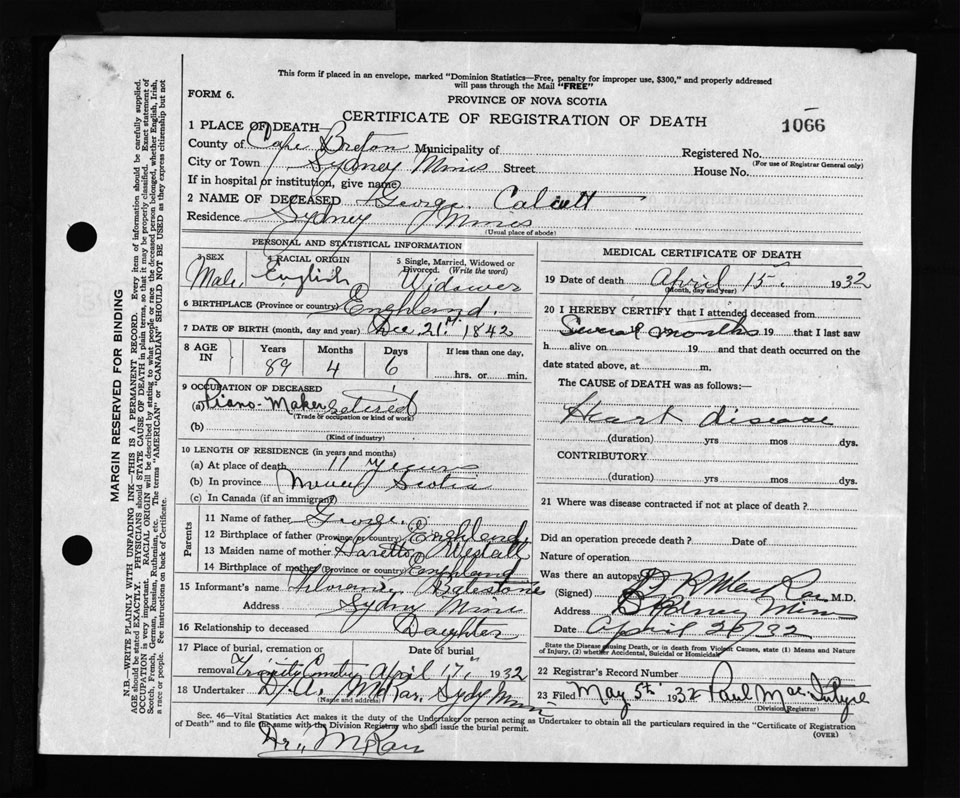 This form if placed in an envelope, marked "Dominion Statistics—Free, penalty for improper use, $300," and properly addressed
will pass through the Mail "FREE"
FORM 6.
PROVINCE OF NOVA SCOTIA
CERTIFICATE OF REGISTRATION OF DEATH
1066
1 PLACE OF DEATH
County of Cape Breton Municipality of
Registered No.
(For use of Registrar General only)
City or Town Sydney Mines Street
House No.
If in hospital or institution, give name
2 NAME OF DECEASED George Calcutt
Residence Sydney Mines
(Usual place of abode)
PERSONAL AND STATISTICAL INFORMATION
3 SEX
Male
4 RACIAL ORIGIN
English
5 Single, Married, Widowed or
Divorced. (Write the word)
Widower
6 BIRTHPLACE (Province or country) Enghlend.
7 DATE OF BIRTH (month, day and year) Dec 21st. 1842
8 AGE IN
Years Months Days If less than one day,
89 4 6 hrs. or min.
9 OCCUPATION OF DECEASED
(a) Piano-Maker retired
(Trade or occupation or kind of work)
(b)
(Kind of industry)
10 LENGTH OF RESIDENCE (in years and months)
(a) At place of death 11 years
(b) In province Nova Scotia
(c) In Canada (if an immigrant)
Parents
11 Name of father George.
12 Birthplace of father (Province or country) Enghlend
13 Maiden name of mother Westall
14 Birthplace of mother (Province or country) Enghland
15 Informant's name
Address Sydney Mines
16 Relationship to deceased Daughter
17 Place of burial, cremation or removal Date of burial
Trinity April 17" 1932
18 Undertaker Sydy Mines
(Name and address)
MEDICAL CERTIFICATE OF DEATH
19 Date of death April 15" 1932
(Month, day and year)
20 I HEREBY CERTIFY that I attended deceased from
Several months 19 that I last saw
h alive on 19 and that death occurred on the
date stated above, at m.
The CAUSE of DEATH was as follows:
Heart disease
(duration) yrs mos dys.
CONTRIBUTORY
(duration) yrs mos dys.
21 Where was disease contracted if not at place of death?
Did an operation precede death? Date of
Nature of operation
Was there an autopsy
(Signed) M.D.
Address Sydney Mines
Date April 26/32
State the Disease causing Death, or in death from Violent Causes, state (1) Means and Nature
of Injury, (2) whether Accidental, Suicidal or Homicidal
22 Registrar's Record Number
23 Filed May 5th 1932 Paul MacIntyre
(Division Registrar)
Sec. 46—Vital Statistics Act makes it the duty of the Undertaker or person acting as Undertaker to obtain all the particulars required in the "Certificate of Registration
of Death" and to file the same with the Division Registrar who shall issue the burial permit.
(OVER)
Dr.
MARGIN RESERVED FOR BINDING
N.B.—WRITE PLAINLY WITH UNFADING INK—THIS IS A PERMANENT RECORD. Every item of information should be carefully supplied.
AGE should be stated EXACTLY. PHYSICIANS should STATE CAUSE OF DEATH in plain terms, so that it may be properly classified. Exact statement of
OCCUPATION is very important. RACIAL ORIGIN will be described by stating to what people or race the deceased person belonged, whether English, Irish,
Scotch, French, German, Russian, Ruthenian, etc. The terms "AMERICAN" or "CANADIAN" SHOULD NOT BE USED as they express citizenship but not
a race or people. See instructions on back of Certificate.